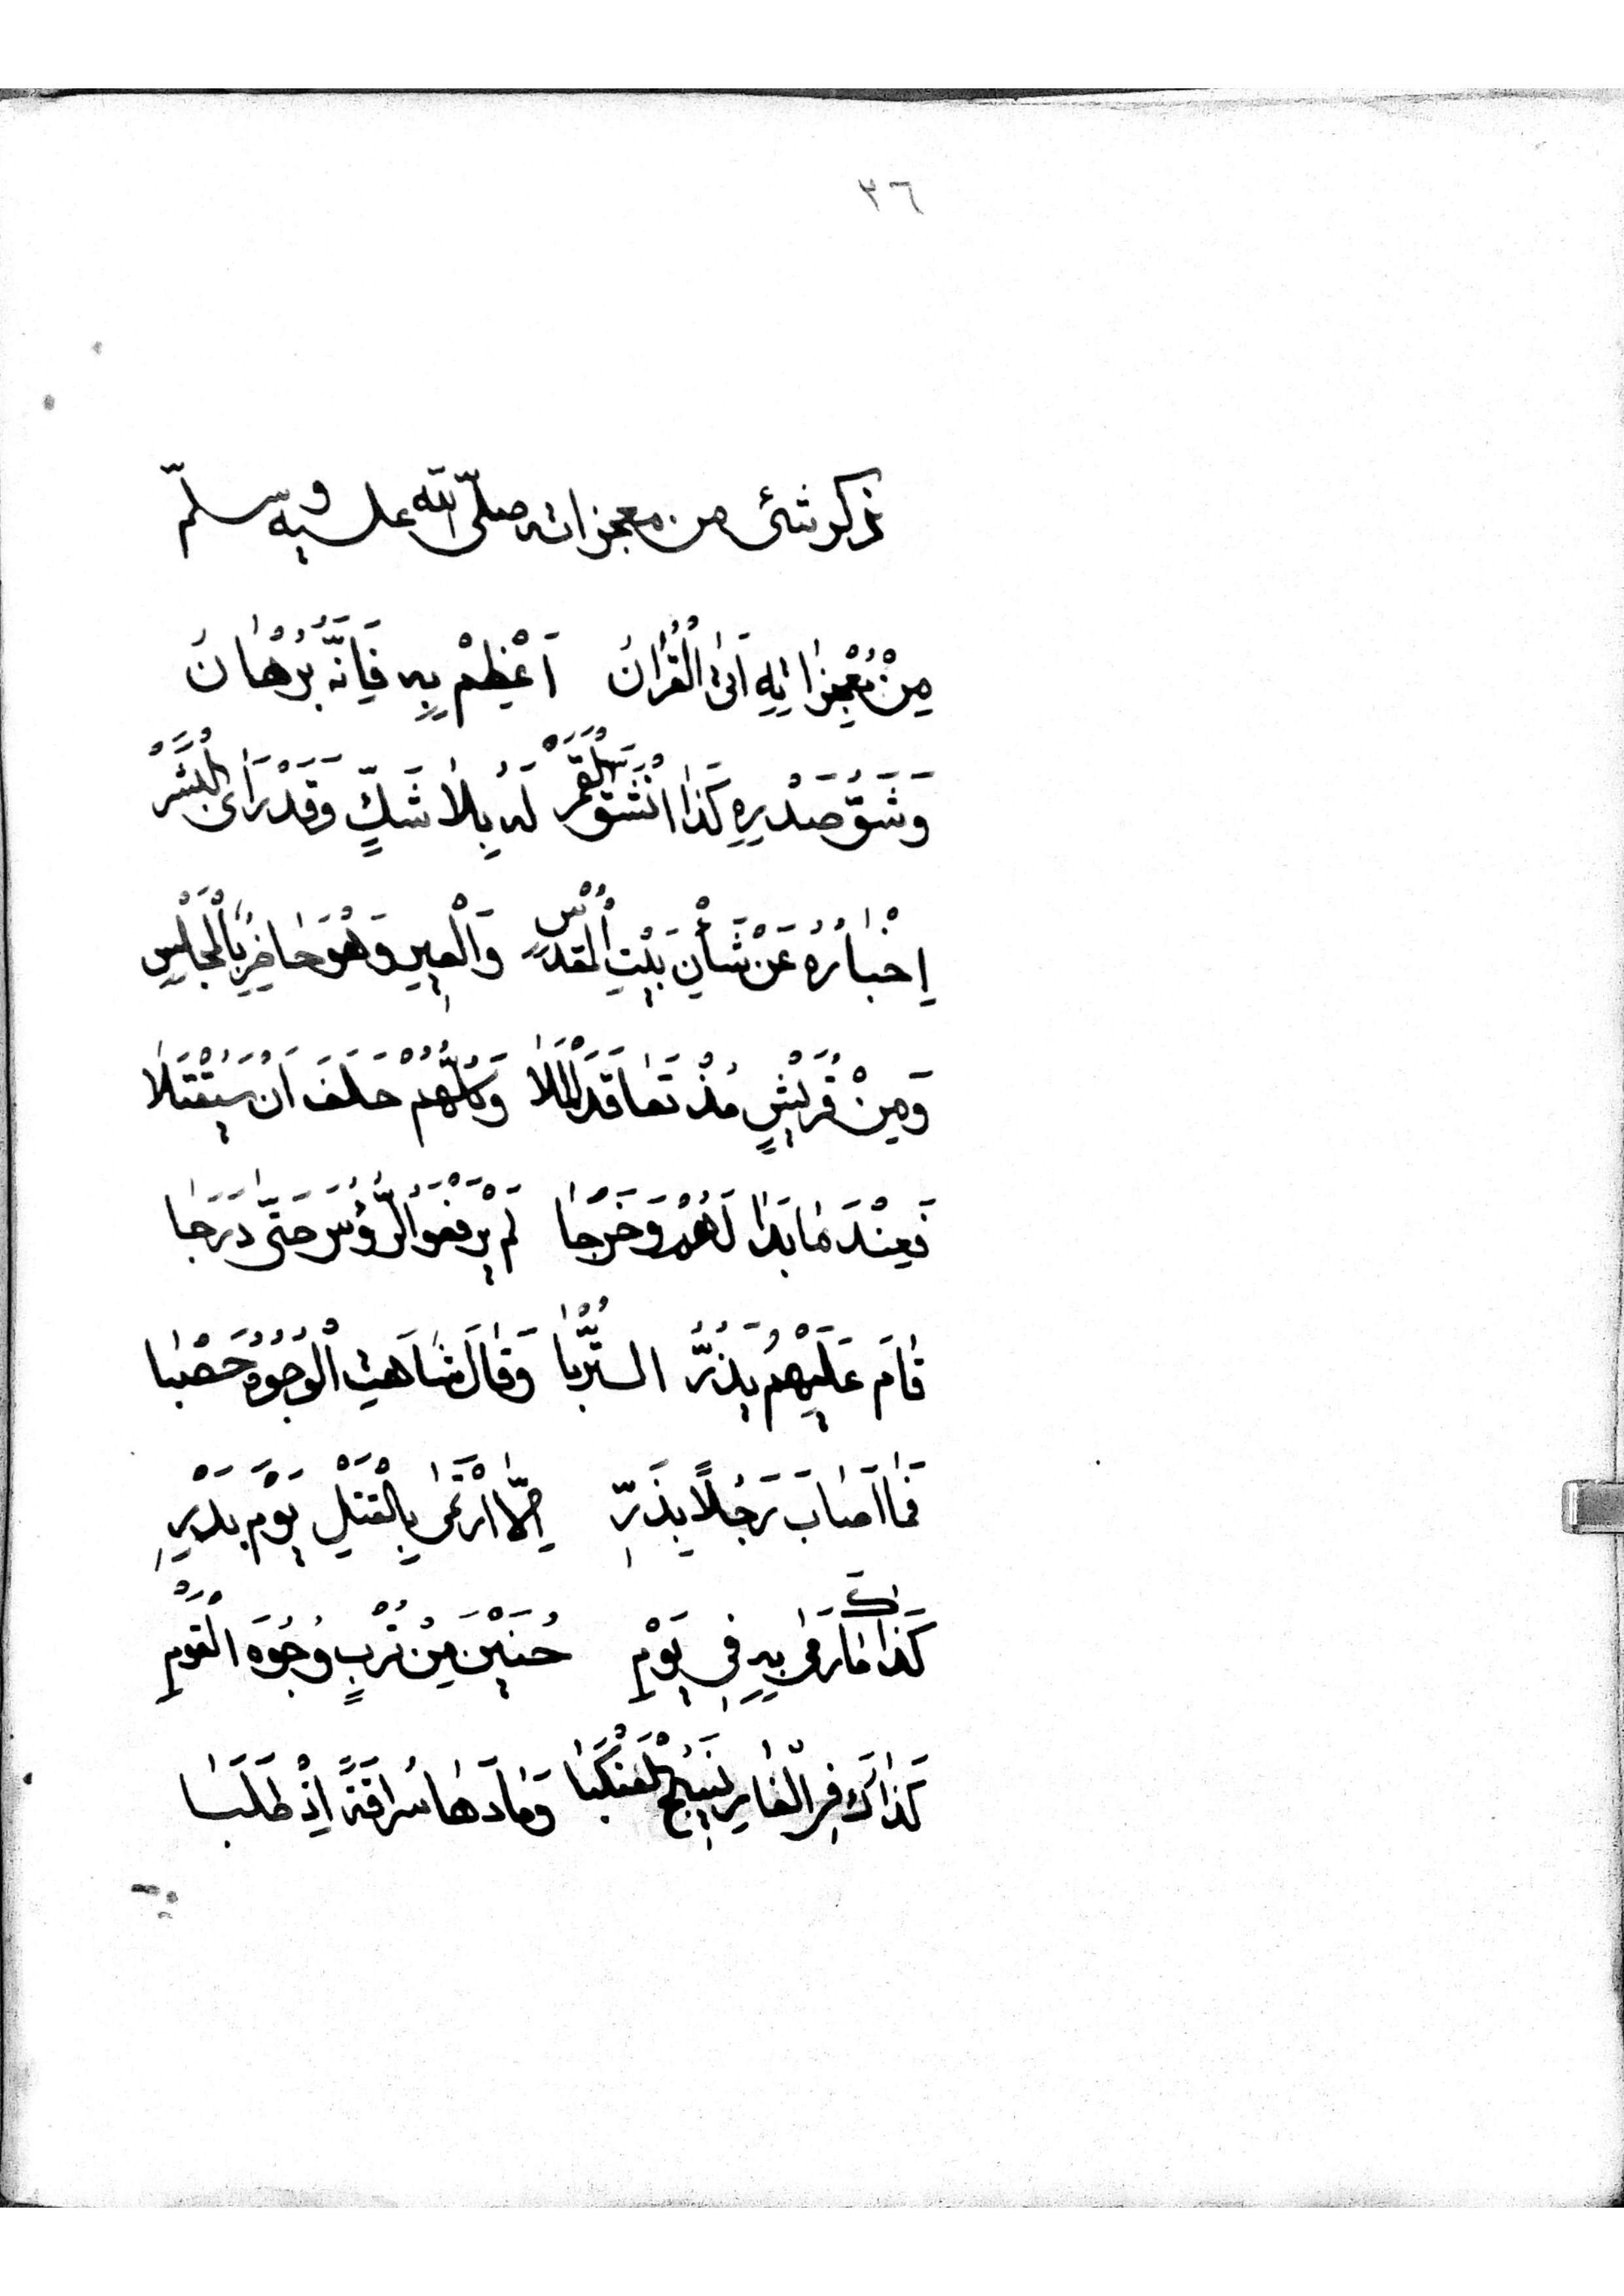 ٣٦
ذكر شئ من معجزاته صلّى الله عليه وسلّم
مِنْ مُعْجِزَاتِهِ اَتَى الْقُرْانُ اَعْظِمْ بِهِ فَاِنَّهُ بُرْهَانُ
وَشَقُّ صَدْرِهِ كَذَا انْشَقَّ الْقَمَرْ لَهُ بِلَا شَكٍّ وَقَدْ رَاَى الْبَشَرْ
اِخْبَارُهُ عَنْ شَأْنِ بَيْتِ الْمَقْدِسِ وَالْعِيرِ وَهْوَ حَاضِرٌ بِالْمَجْلِسِ
وَمِنْ قُرَيْشٍ مُذْ تَعَاقَدَ الْمَلَا وَكُلُّهُمْ حَلَفَ اَنْ يَقْتُلَا
فَعِنْدَ مَا بَدَا لَهُمْ وَخَرَجَا لَمْ يَرْفَعُوا الرُّؤُسَ حَتَّى دَرَجَا
قَامَ عَلَيْهِمُ يَذُرُّ التُّرْبَا وَقَالَ شَاهَتِ الْوُجُوهُ حَصْبَا
فَمَا اَصَابَ رَجُلًا بِذَرِّ اِلَّا ارْتَمَى بِالْقَتْلِ يَوْمَ بَدْرِ
كَذَاكَ مَا رَمَى بِهِ فِي يَوْمِ حُنَيْنَ مِنْ تُرْبٍ وُجُوهَ الْقَوْمِ
كَذَاكَ فِي الْغَارِ نَسِيجُ الْعَنْكَبَا وَمَا دَهَا سُرَاقَةً اِذْ طَلَبَا